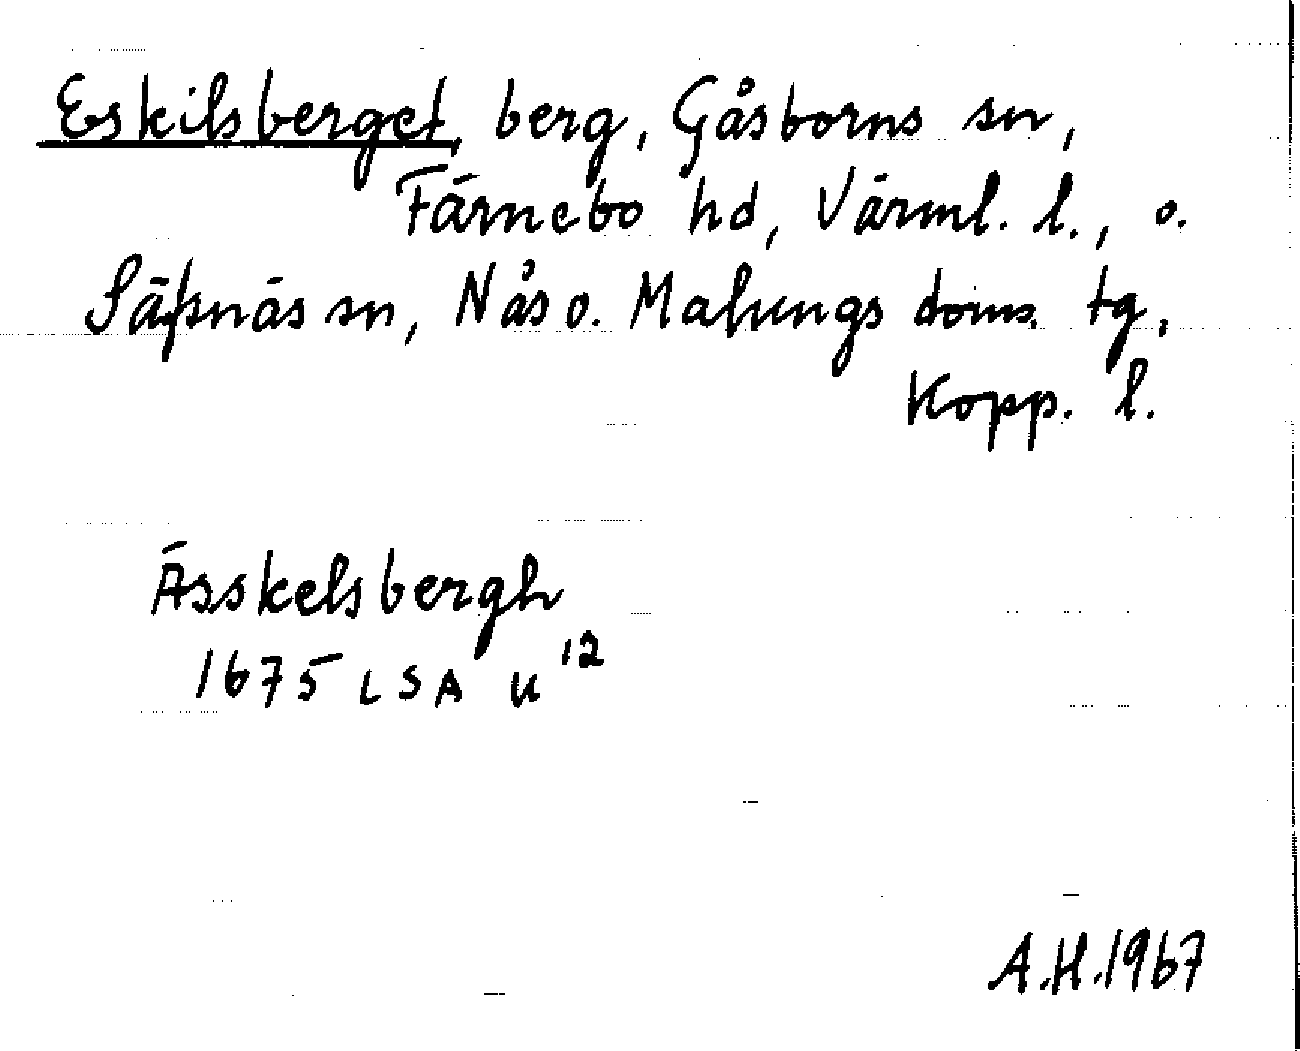 Eskilsberget, berg, Gåsborns sn,
Färnebo hd, Värml. l., o.
Säfsnäs sn, Nås o. Malungs doms. tg,
Kopp. l.
Ässkelsbergh
1675 LSA U 12
A.H. 1967